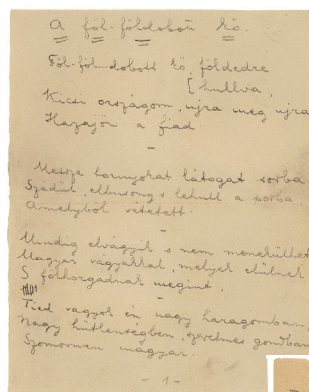 A föl-földobott kő.
Föl-föl-dobott kő, földedre
[hullva,
Kicsi országom, ujra meg ujra
Hazajön a fiad.
-
Messze tornyokat látogat sorba
Szédül, elbusong s lehull a porba
Amelyből vétetett.
-
Mindig elvágyik s nem menekülhet
Magyar vágyakkal, melyek elülnek
S fölhorgadnak megint.
Tied vagyok én nagy haragomban,
Nagy hűtlenségben, szerelmes gondban
Szomoruan magyar.
- 1 -